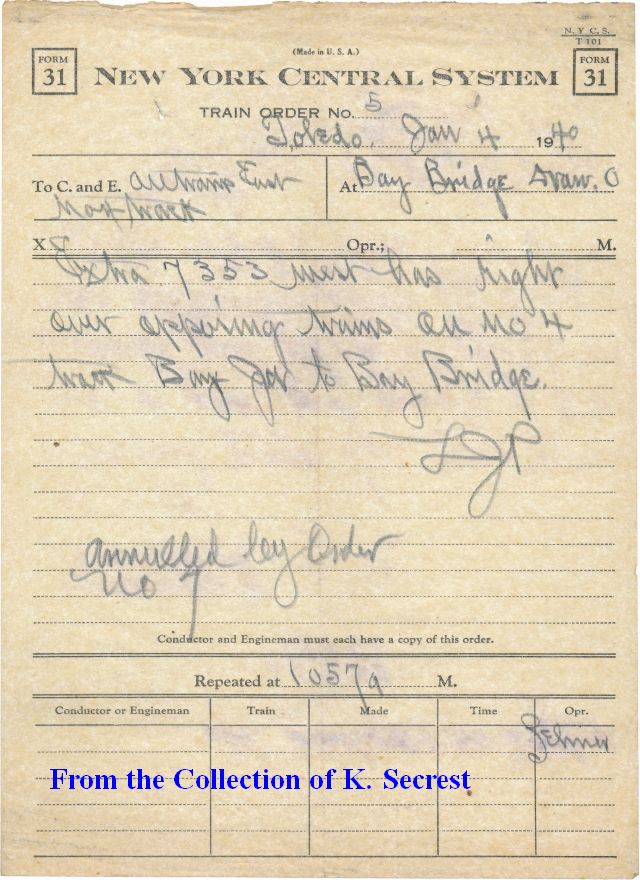 N. Y. C. S.
T 101
(Made in U. S. A.)
FORM 31
NEW YORK CENTRAL SYSTEM
FORM 31
TRAIN ORDER No. 5
Toledo, Jan 4 1940
To C. and E. All trains East
No 4 track
At Bay Bridge Draw. O
X Opr.; M.
Extra 7353 west has right
over opposing trains on No 4
track Bay Jct to Bay Bridge.
LJP
annulled by Order
No 7
Conductor and Engineman must each have a copy of this order.
Repeated at 1057 a M.
Conductor or Engineman Train Made Time Opr.
From the Collection of K. Secrest